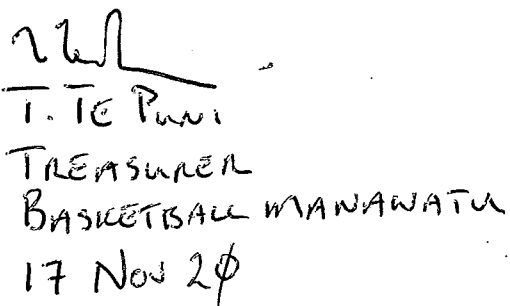 T. TE PUNI
TREASURER
BASKETBALL MANAWATU
17 NOV 20